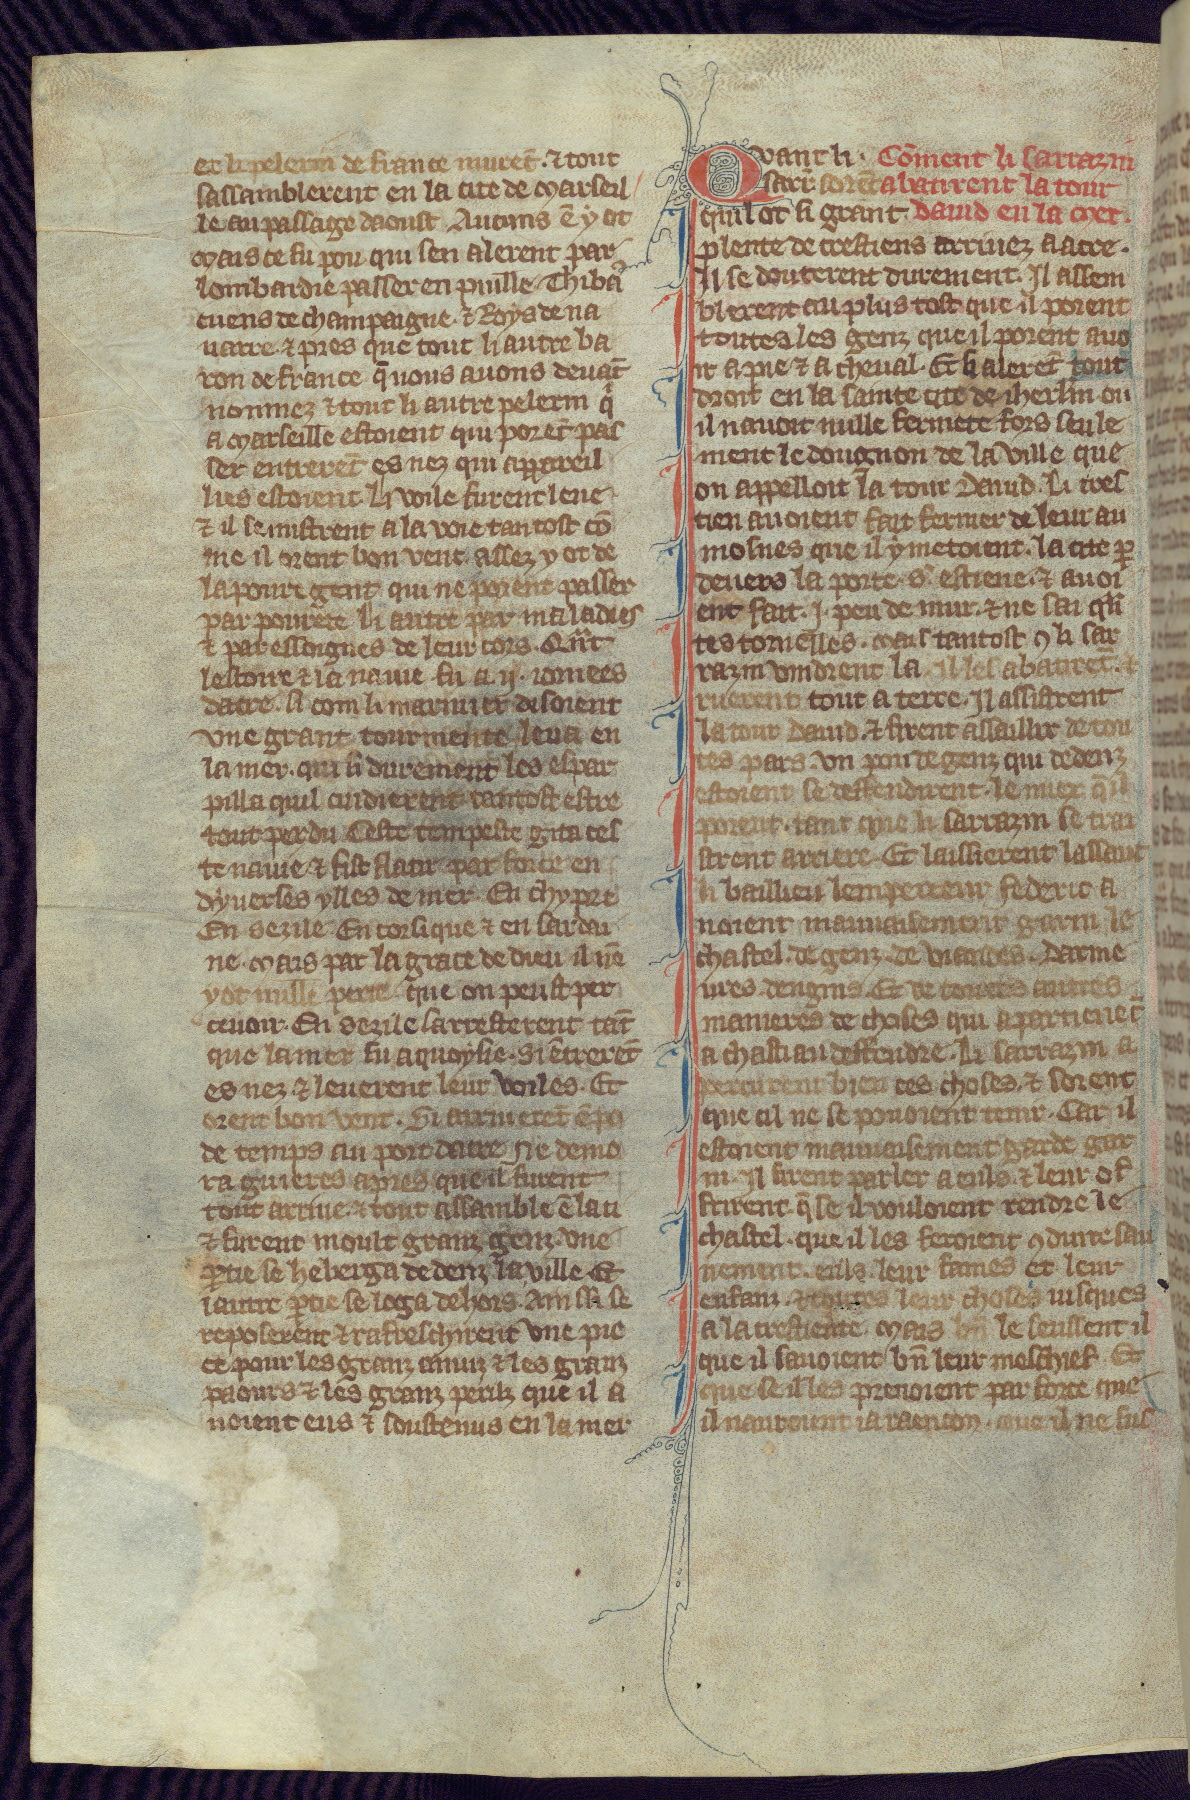 et li pelerin de france murēt. ⁊ tout
sassamblerent en la cite de marseil
le au passage daoust. Aucuns ē y ot
mais ce fu pou qui sen alerent par
lombardie passer en puille. Thibā
cuens de champaigne. ⁊ Roys de na
uarre. ⁊ pres que tout li autre ba
ron de france q̄ nous auons deuāt
nommez ⁊ tout li autre pelerin q̄
a marseille estoient qui porēt pas
ser entrerēt es nez qui appareil
liés estoient. Li voile furent leue
⁊ il se mistrent a la voie tantost cō
me il orent bon vent. assez y ot de
la poure gent qui ne porent passer
par pourete. li autre par maladies
⁊ par essoignes de leur cors. Qn̄t
lestoire ⁊ la nauie fu a .ij. iornees
dacre. si com li marinier disoient
vne grant tourmente leua en
la mer. qui si durement les espar
pilla quil cuidierent tantost estre
tout perdu. Ceste tempeste gita ces
te nauie ⁊ fist flatir par force en
dyuerses ylles de mer. En chypre
En sezile. En corsique ⁊ en sardai
ne. mais par la grace de dieu il nē
y ot nulle perie que on peust per
ceuoir. En sezile sarresterent tāt
que la mer fu aquoysie. si ētrerēt
es nez ⁊ leuerent leur voiles. Et
orent bon vent. Si arriuerēt ē po
de temps au port dacre. Ne demo
ra guieres apres que il furent
tout arriue. ⁊ tout assamble ē la ci
⁊ furent moult granz genz. vne
ꝑtie se heberga dedenz la ville. Et
lautre ꝑtie se loga dehors. Ainssi se
reposerent ⁊ rafreschirent vne pie
ce pour les granz ennuiz ⁊ les granz
paours ⁊ les granz perilz que il a
uoient eus ⁊ soustenus en la mer
Qvant li Cōment li sarrazin
sarr̄ sorent abatirent la tour
quil ot si grant dauid en la cyet.
plente de crestiens arriuez a acre.
Il se douterent durement. Il assem
blerent au plus tost que il porent
toutes les genz que il porent auo
ir a pie ⁊ a cheual. Et li alerēt tout
droit en la sainte cite de iherl̄m ou
il nauoit nulle fermete fors seule
ment le dougnon de la ville que
on appelloit la tour dauid. Li cres
tien auoient fait fermer de leur au
mosnes que il y metoient. la cite ꝑ
deuers la porte .S. estiene. ⁊ auoi
ent fait .j. peu de mur. ⁊ ne sai qn̄
tes tornelles. mais tantost ꝯ li sar
razin vindrent la. Il les abatirēt. ⁊
ruerent tout a terre. Il assistrent
la tour dauid. ⁊ firent assaillir de tou
tes pars. vn pou de genz qui dedenz
estoient se deffendirent. le miex q̄ il
porent. tant que li sarrazin se trai
strent arriere. Et laissierent lassaut
li baillieu lempereeur federic a
uoient mauuaisement garni le
chastel. de genz. de viandes. darme
ures. dengins. Et de toutes autres
manieres de choses qui apartienēt
a chastiau deffendre. Li sarrazin a
percurent bien ces choses. ⁊ sorent
que cil ne se pouoient tenir. Car il
estoient mauuaisement garde gar
ni. Il firent parler a euls. ⁊ leur of
frirent. q̄ se il vouloient rendre le
chastel. que il les feroient ꝯduire sau
uement. euls. leur fames et leur
enfanz. ⁊ toutes leur choses iusques
a la crestiente. mais bn̄ le seussent il
que il sauoient bn̄ leur meschief. Et
que se il les prenoient par force que
il nauroient ia raencon. que il ne fus